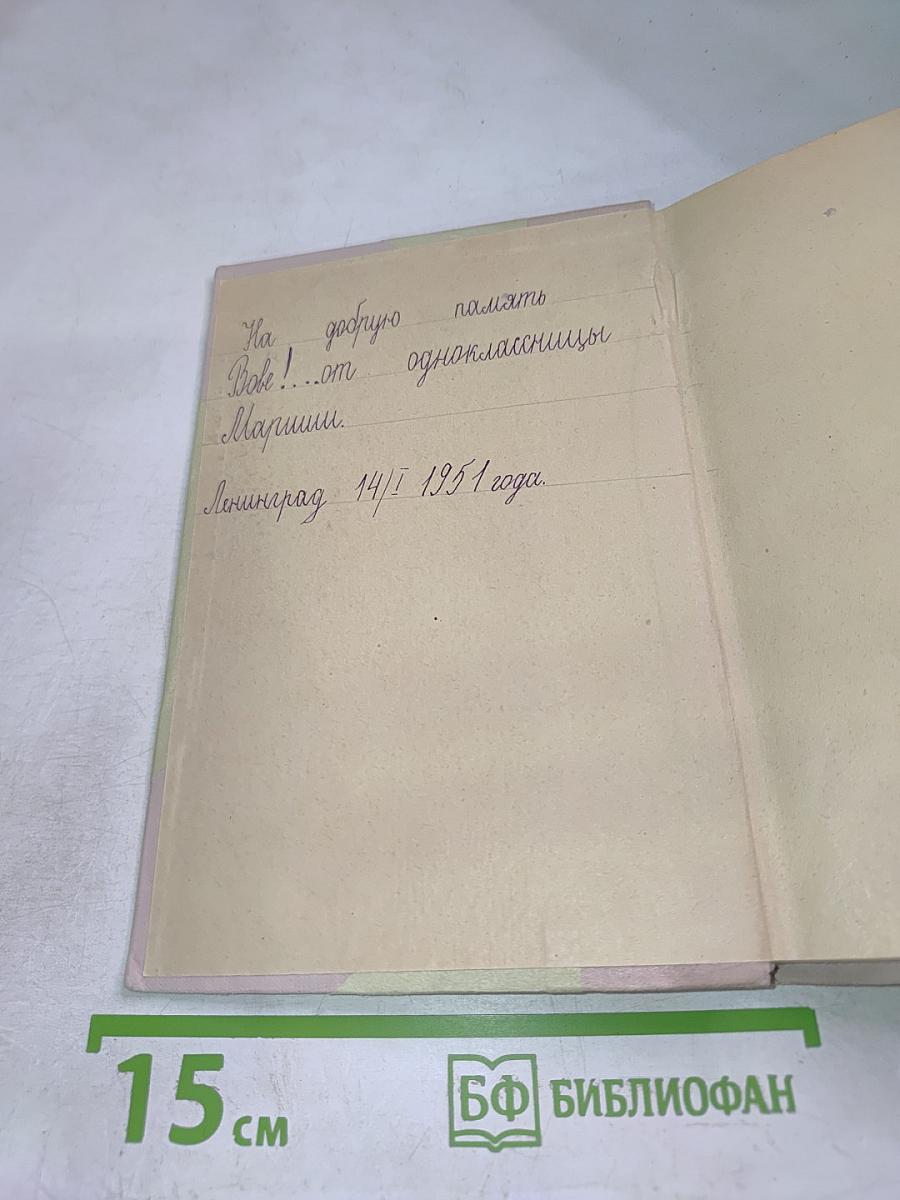 На добрую память
Вове!...от одноклассницы
Мариши.
Ленинград 14/I 1951 года.
15 см
БФ БИБЛИОФАН